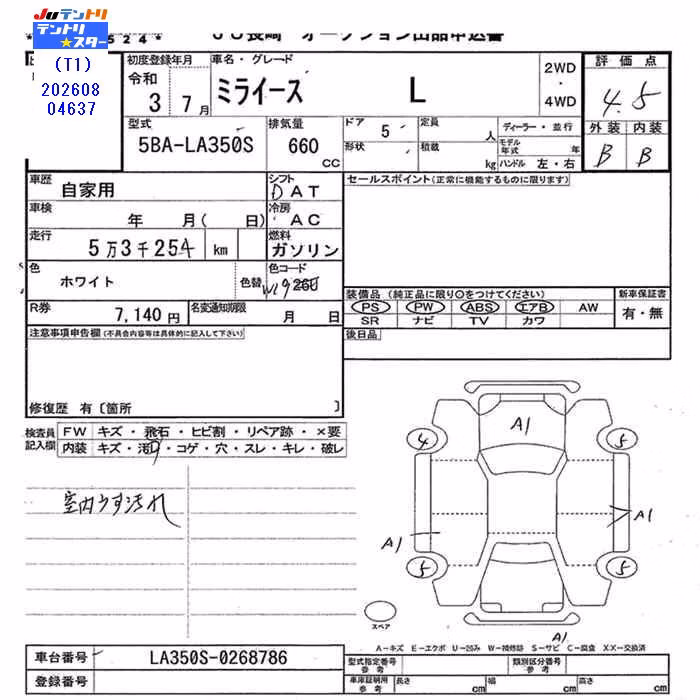 JUテントリ
テントリ★スター
*524**
JU長崎 オークション出品申込書
(T1)
202608
04637
初度登録年月
令和
3 7月
車名・グレード
ミライース L
2WD
・
4WD
評価点
4.5
外装 内装
B B
型式
5BA-LA350S
排気量
660
CC
ドア 5
形状
定員 人
積載 kg
ディーラー・並行
モデル年式 年
ハンドル 左・右
車歴
自家用
シフト
DAT
セールスポイント(正常に機能するものに限ります)
車検
年 月( 日)
冷房
AC
走行
5万3千254 km
燃料
ガソリン
色
ホワイト
色替
色コード
W19
R券
7,140円
名変通知期限
月 日
装備品 (純正品に限り○をつけてください)
PS PW ABS エアB AW
SR ナビ TV カワ
新車保証書
有・無
注意事項申告欄(不具合内容等は具体的に記入して下さい)
後日品
修復歴 有〔箇所 〕
検査員
記入欄
FW キズ・飛石・ヒビ割・リペア跡・×要
内装 キズ・汚れ・コゲ・穴・スレ・キレ・破レ
室内うす汚れ
A1
4
5
A1
A1
5
5
スペア
A1
A-キズ E-エクボ U-凹み W-補修跡 S-サビ C-腐食 XX-交換済
車台番号
LA350S-0268786
登録番号
型式指定番号
参考
類別区分番号
参考
車庫証明用
参考
長さ cm
幅 cm
高さ cm